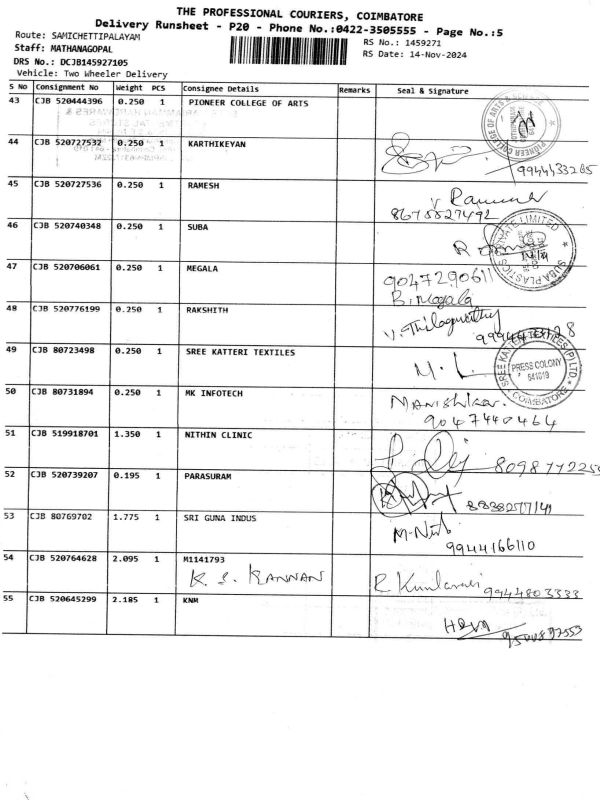 THE PROFESSIONAL COURIERS, COIMBATORE
Delivery Runsheet - P20 - Phone No.:0422-3505555 - Page No.:5
Route: SAMICHETTIPALAYAM
RS No.: 1459271
Staff: MATHANAGOPAL
RS Date: 14-Nov-2024
DRS No.: DCJB145927105
Vehicle: Two Wheeler Delivery
S No Consignment No Weight PCS Consignee Details Remarks Seal & Signature
43 CJB 520444396 0.250 1 PIONEER COLLEGE OF ARTS
44 CJB 520727532 0.250 1 KARTHIKEYAN
45 CJB 520727536 0.250 1 RAMESH
8675527492
46 CJB 520740348 0.250 1 SUBA
SUBA PLASTICS PRIVATE LIMITED
47 CJB 520706061 0.250 1 MEGALA
9047290611
B. Megala
48 CJB 520776199 0.250 1 RAKSHITH
49 CJB 80723498 0.250 1 SREE KATTERI TEXTILES
SREE KATTERI TEXTILES (P) LTD
PRESS COLONY
641019
COIMBATORE
50 CJB 80731894 0.250 1 MK INFOTECH
9047440464
51 CJB 519918701 1.350 1 NITHIN CLINIC
52 CJB 520739207 0.195 1 PARASURAM
53 CJB 80769702 1.775 1 SRI GUNA INDUS
9944166110
54 CJB 520764628 2.095 1 M1141793
K. S. KANNAN
9944803333
55 CJB 520645299 2.185 1 KNM